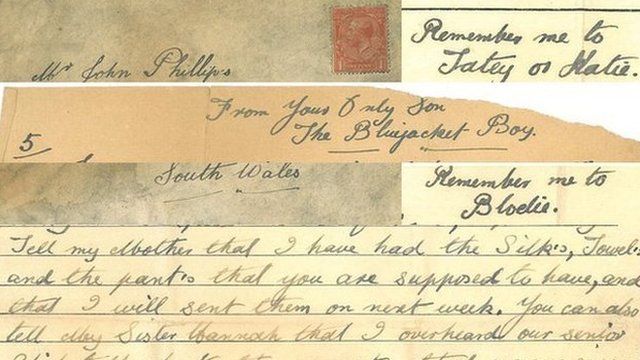 Mr John Phillips
Remember me to
Tatey or Katie.
From Your Only Son
The Bluejacket Boy.
5
South Wales
Remember me to
Blodie.
Tell my Mother that I have had the Silks, Towels
and the pants that you are supposed to have, and
that I will sent them on next week. You can also
tell My Sister Hannah that I overheard our senior